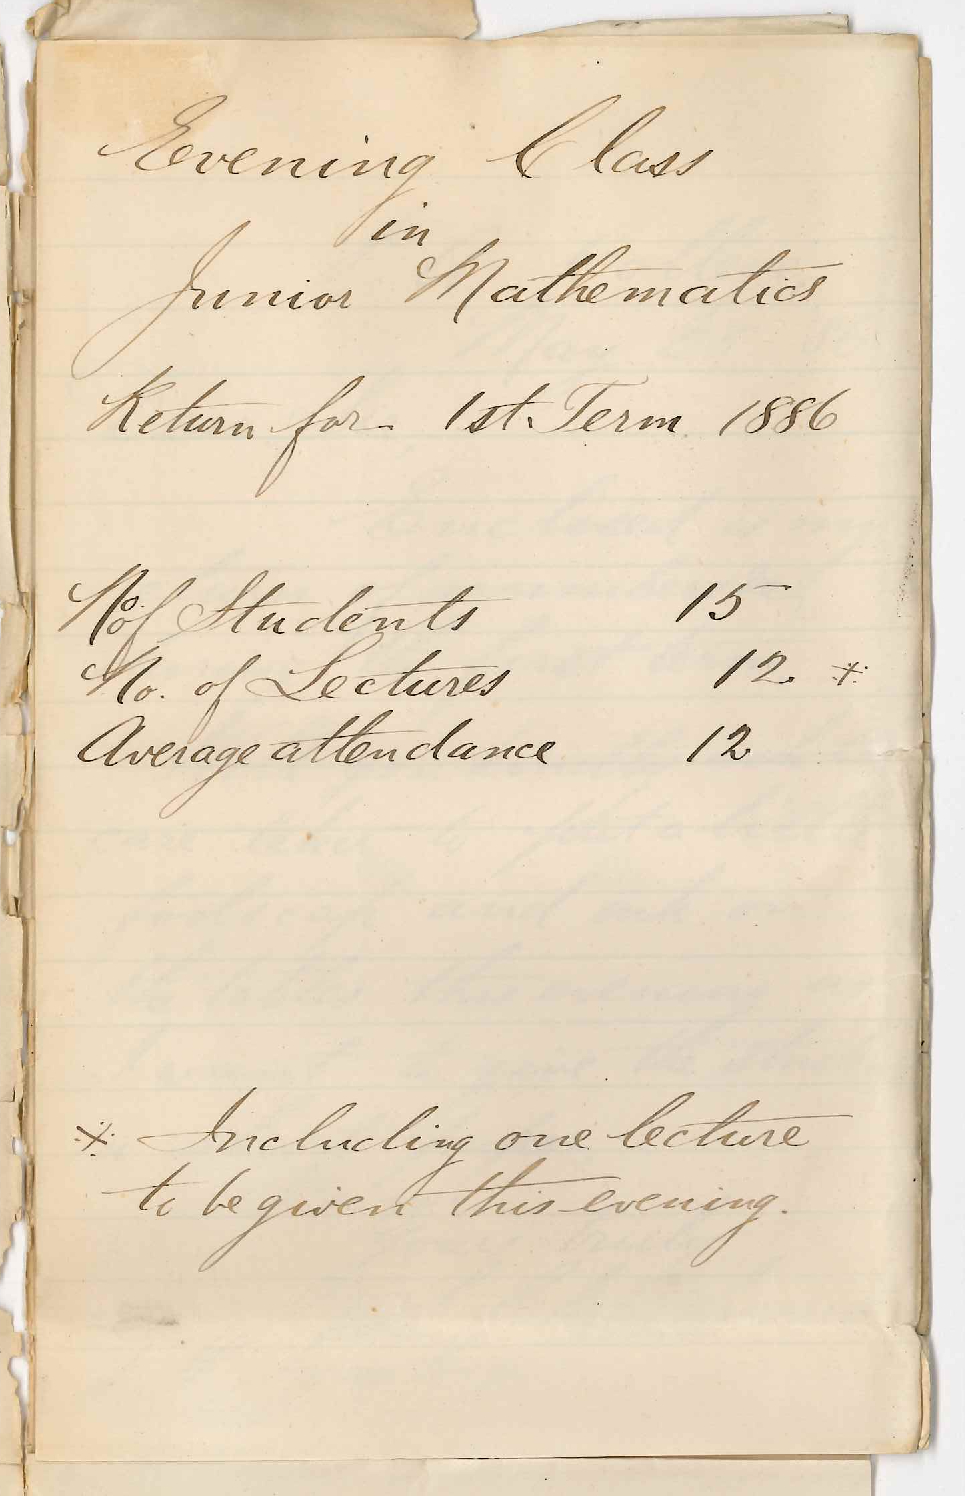 Evening Class
in
Junior Mathematics
Return for 1st. Term 1886
No. of Students 15
No. of Lectures 12 *
Average attendance 12
* Including one lecture
to be given this evening.